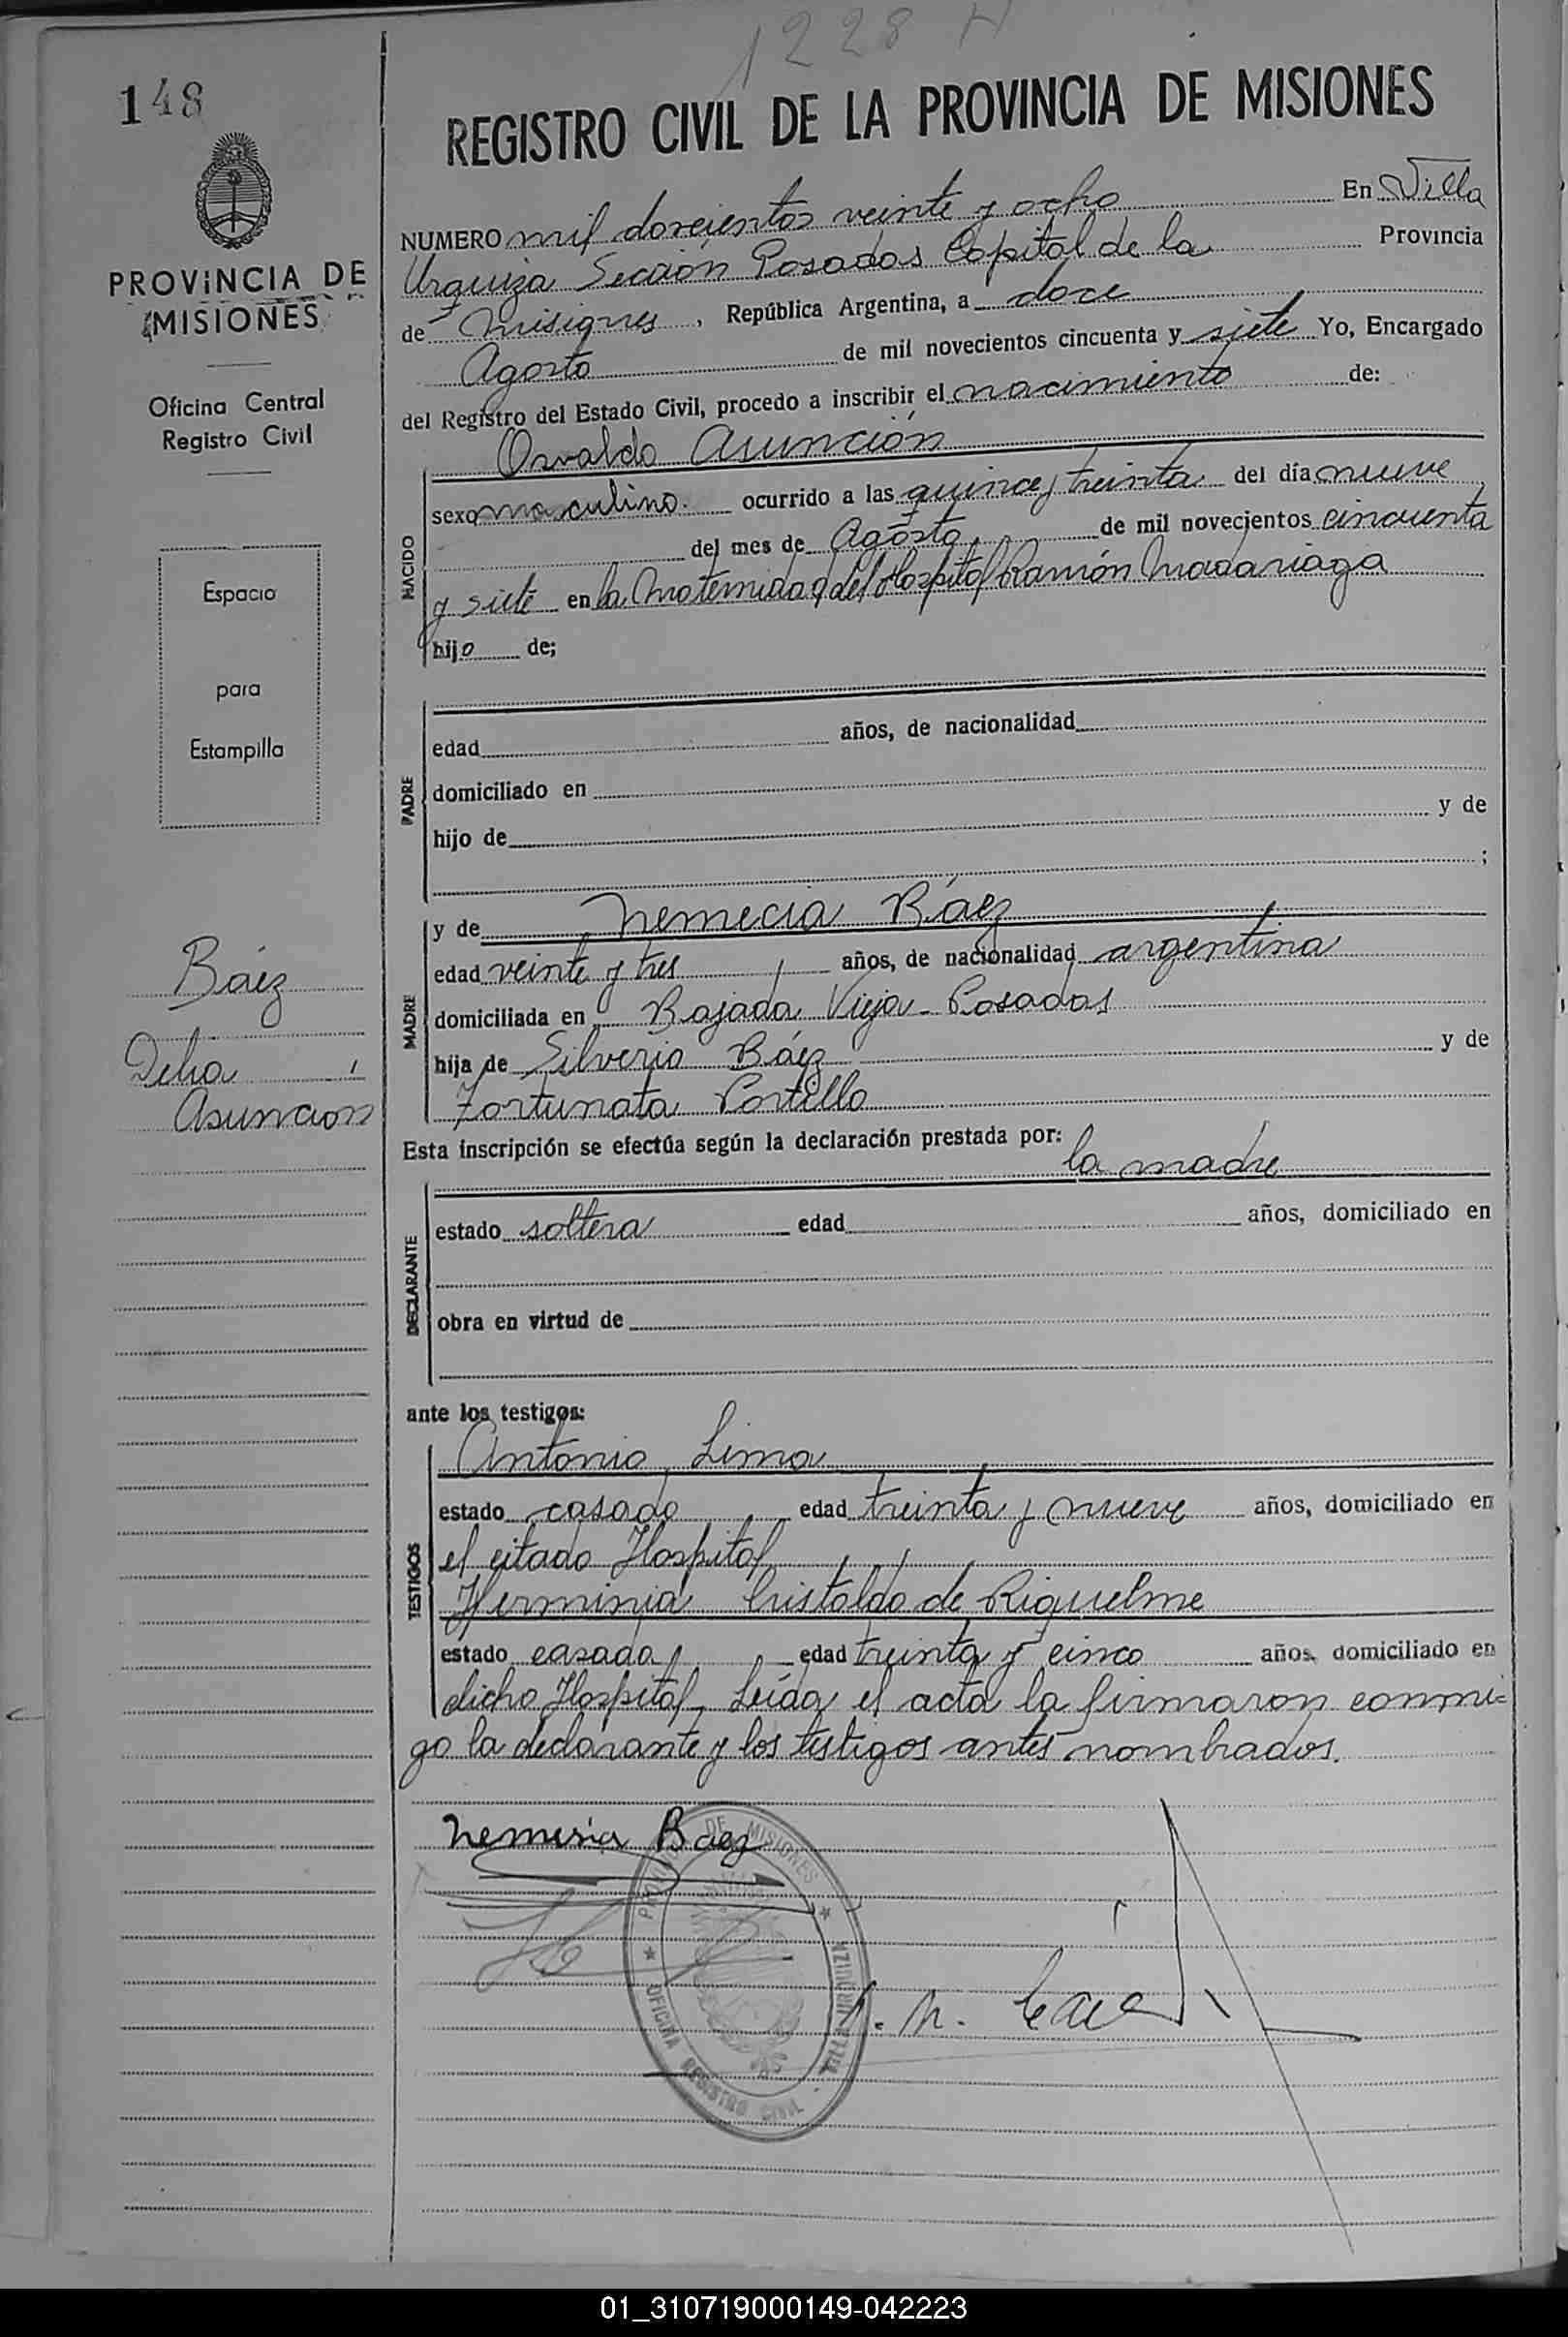 1228 H
148
REGISTRO CIVIL DE LA PROVINCIA DE MISIONES
PROVINCIA DE
MISIONES
Oficina Central
Registro Civil
Espacio
para
Estampilla
Báez
Delia
Asuncion
NUMERO mil doscientos veinte y ocho En Villa
Urquiza Sección Posadas Capital de la Provincia
de Misiones, República Argentina, a doce
Agosto de mil novecientos cincuenta y siete Yo, Encargado
del Registro del Estado Civil, procedo a inscribir el nacimiento de:
Osvaldo Asunción
NACIDO
sexo masculino. ocurrido a las quince y treinta del día nueve
del mes de Agosto, de mil novecientos cincuenta
y siete en la Maternidad del Hospital Ramón Madariaga
hijo de;
PADRE
edad años, de nacionalidad
domiciliado en
hijo de y de
;
MADRE
y de Nemecia Báez
edad veinte y tres años, de nacionalidad argentina
domiciliada en Bajada Vieja - Posadas
hija de Silverio Báez y de
Fortunata Portillo
Esta inscripción se efectúa según la declaración prestada por:
la madre
DECLARANTE
estado soltera edad años, domiciliado en
obra en virtud de
ante los testigos:
TESTIGOS
Antonio Lima
estado casado edad treinta y nueve años, domiciliado en
el citado Hospital
Herminia Cristaldo de Riquelme
estado casada edad treinta y cinco años, domiciliado en
dicho Hospital, Leída el acta la firmaron conmi=
go la declarante y los testigos antes nombrados.
Nemesia Baez
PROVINCIA DE MISIONES
OFICINA REGISTRO CIVIL
VILLA URQUIZA
01_310719000149-042223